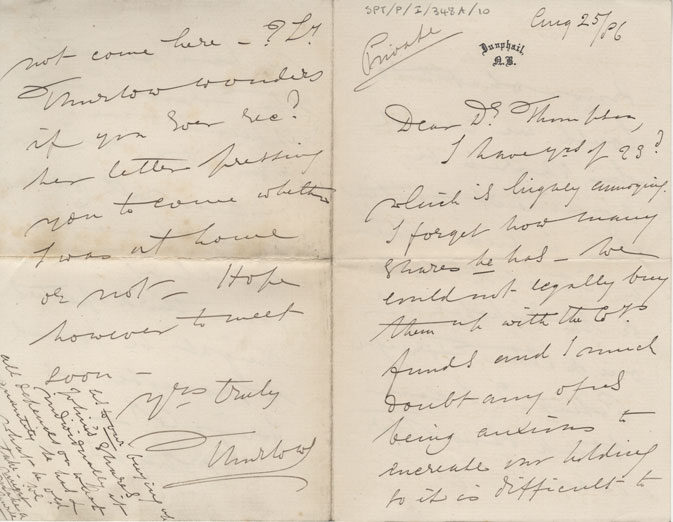 SPT/P/I/348A/10
Aug 25/86
Private
Dunphail,
N.B.
Dear Dr. Thompson,
I have yrs of 23?
which is highly annoying.
I forget how many
shares he has - We
could not legally buy
them up with the Coys.
funds and I much
doubt any of us
being anxious to
encrease our holding
to it is difficult to
not come here - ? Ly
Thurlow wonders
if you ever rec?
her letter pressing
you to come whether
I was at home
or not - Hope
however to meet
soon -
yrs truly
Thurlow
as to our buying up
John's shares
individually it
all depends on what